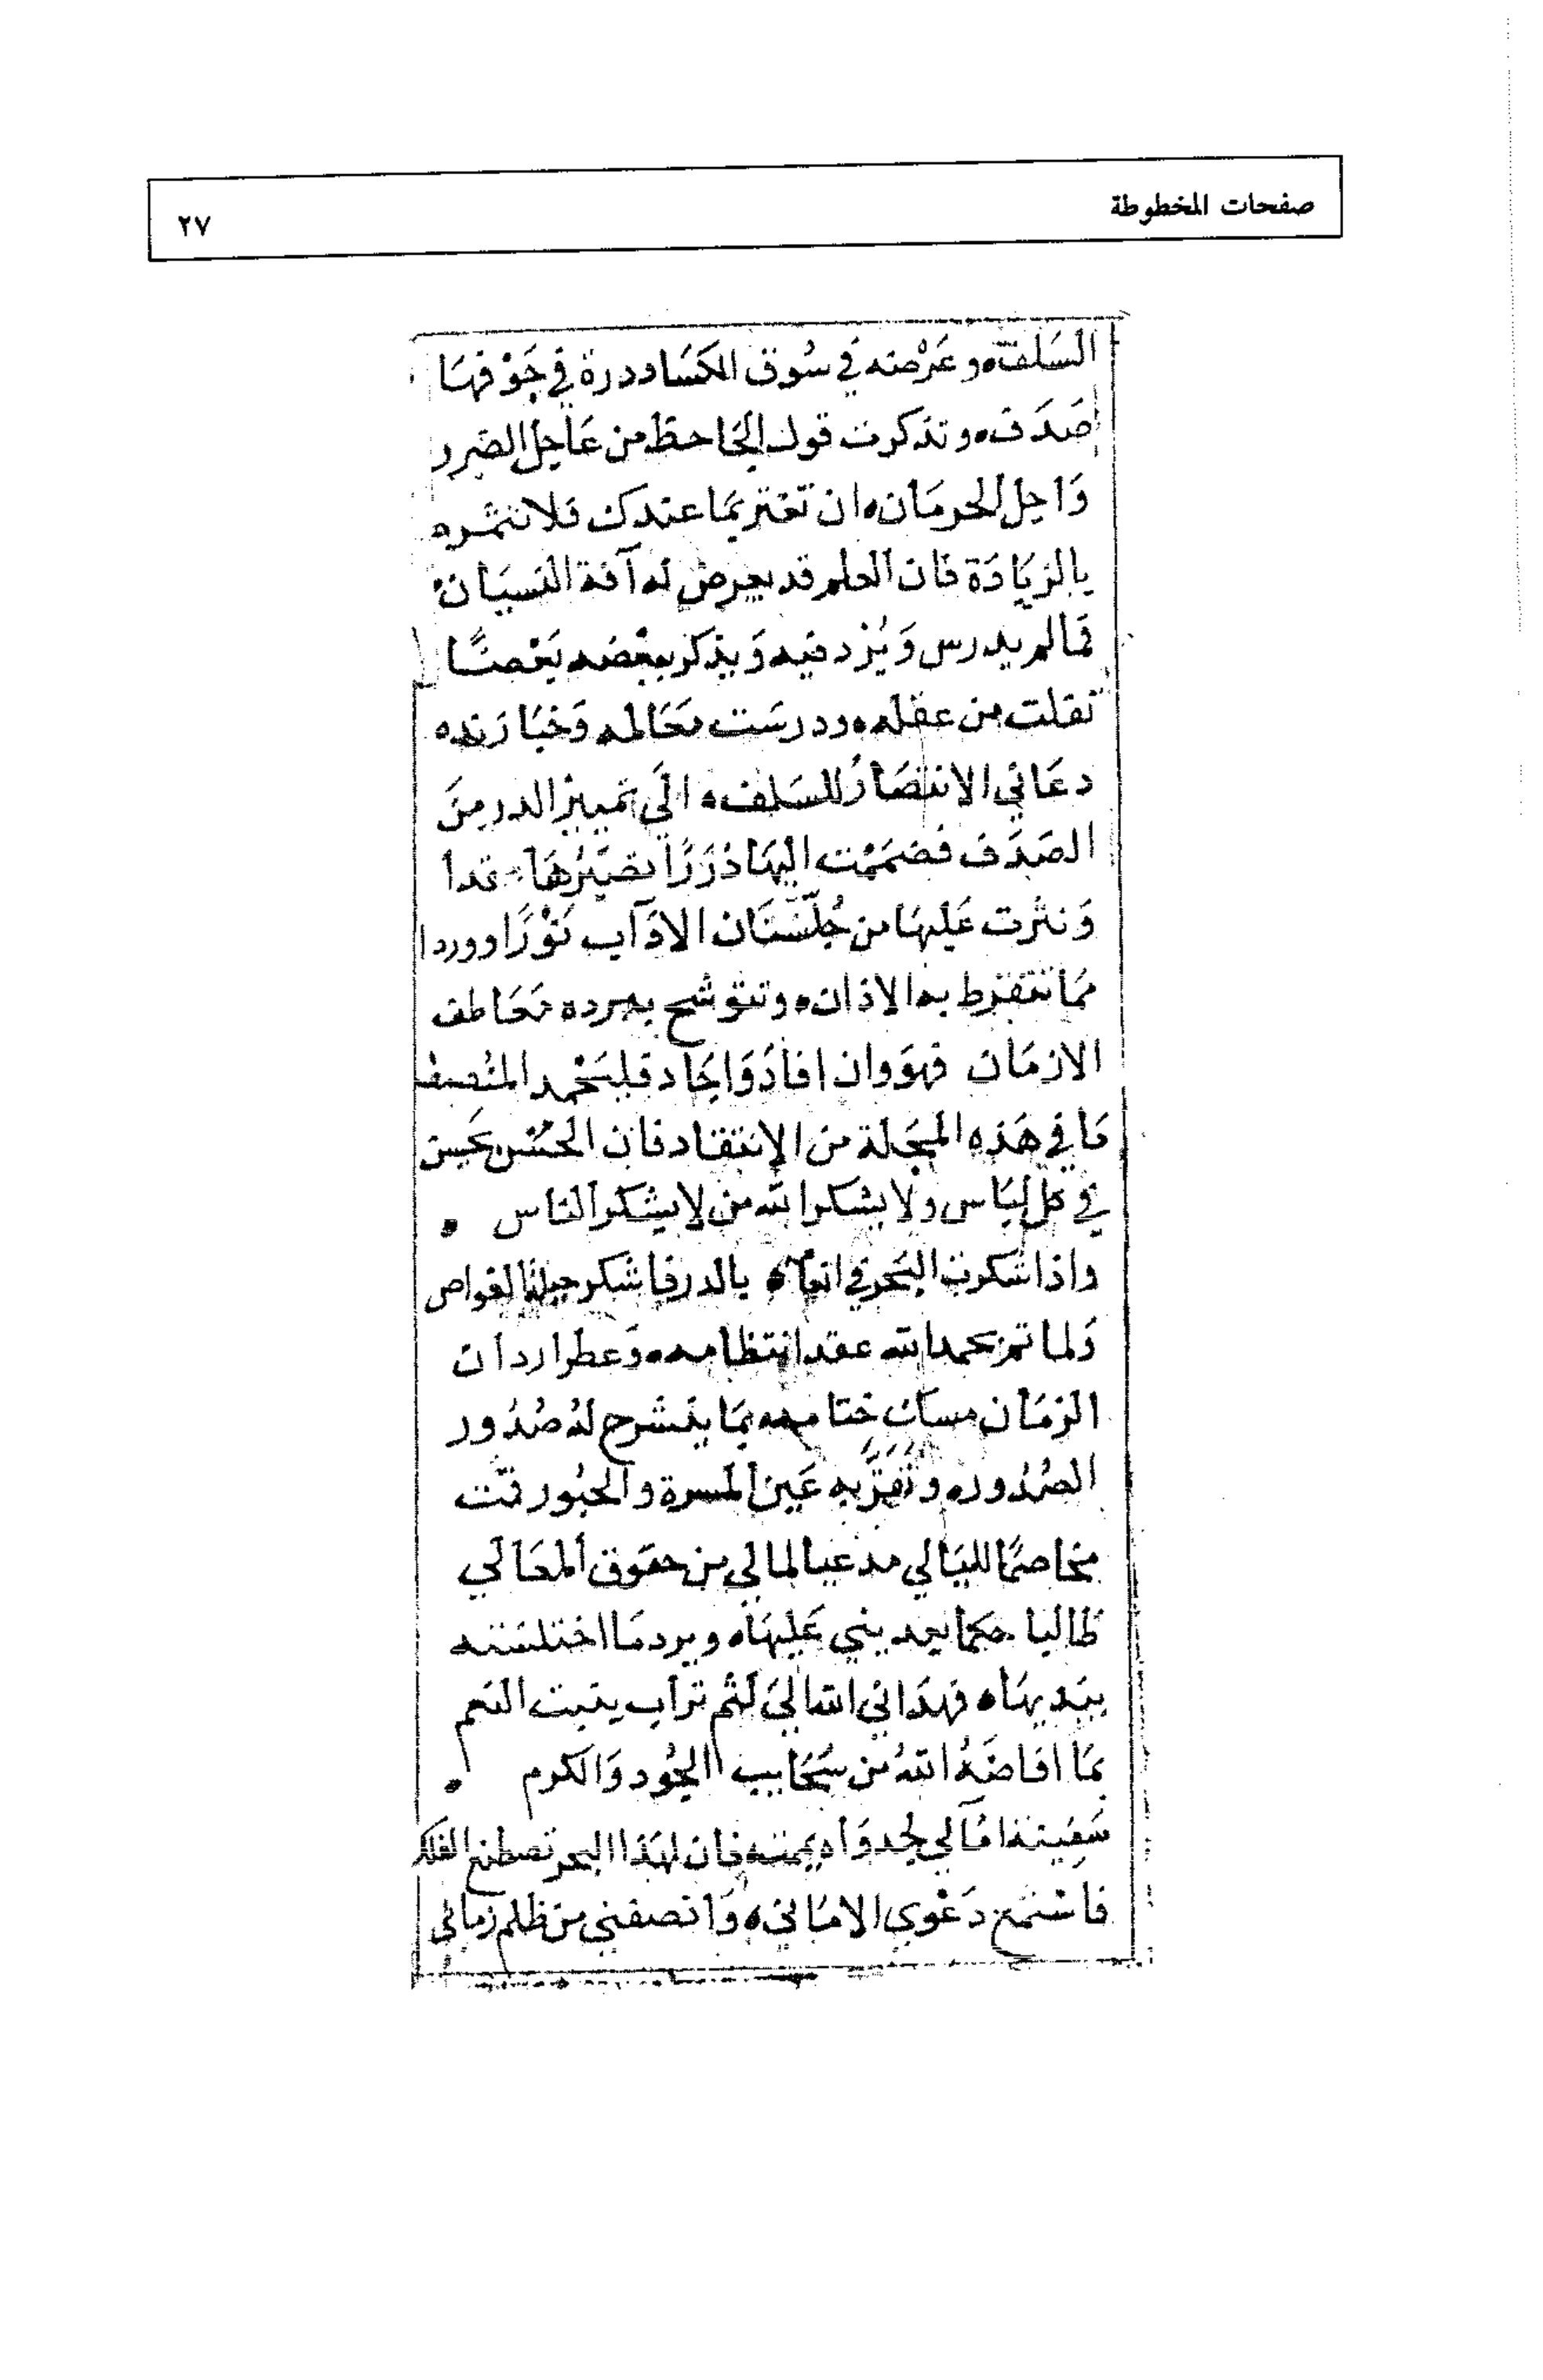 صفحات المخطوطة
٢٧
السَلف وعَرْضه في سُوق الكسَاد درة في جَوْفهَا
صَدَف وتذكرت قول الجَاحظ من عَاجل الضرر
وَاجل الحرمَان ان تغتر بمَا عندك فلا تثمره
بالزيَادَة فان العلم قد يعرض له آفة النسيَان
فمَا لم يدرس وَيُزد فيه وَيذكر بعْضه بَعْضًا
تفلت من عقله ودرسَت معَالمه وَخبَا زنده
دعَاني الانتصَارُ للسَلف الَى تمييز الدر مِنَ
الصَدَف فضممْت اليهَا دُرَرًا تصَيّرُهَا عقدا
وَنثرت عَليهَا من جُلّسْتَان الادَآب نَوْرًا ووردا
ممَا تتقرط به الاذان وتتوشح ببرده معَاطف
الازمَان فهوَ وان افادَ وَاجَاد فليَحْمد المُنصف
مَا في هَذه المجَلة من الانتقاد فان الحُسْن حَسن
في كل لبَاس ولا يشكر الله من لا يشكر الناس
واذا شكرت البَحر في انعامه بالدر فاشكر حيلة الغواص
وَلما تم بحمد الله عقد انتظامه وَعطر اردان
الزمَان مسك ختامه بمَا ينشرح لهُ صُدُور
الصُدُور وتَقَرّ به عَين المسرة والحبُور قمت
مخَاصمًا لليَالي مدعيا لمالي من حقوق المعَالي
طَالبا حكمًا يعديني عَليهَا ويرد مَا اختلسَته
بيَديهَا فهدَاني الله الىَ لَثم ترَاب ينبت النعم
بمَا افَاضَهُ اللهُ من سحَايب الجُود وَالكرم
سَفينة امَالي لجدوَاه يممته فان لهذا البحر تصطنع الفلك
فاسْتمع دَعْوى الامَاني وَانصفني من ظلم زماني